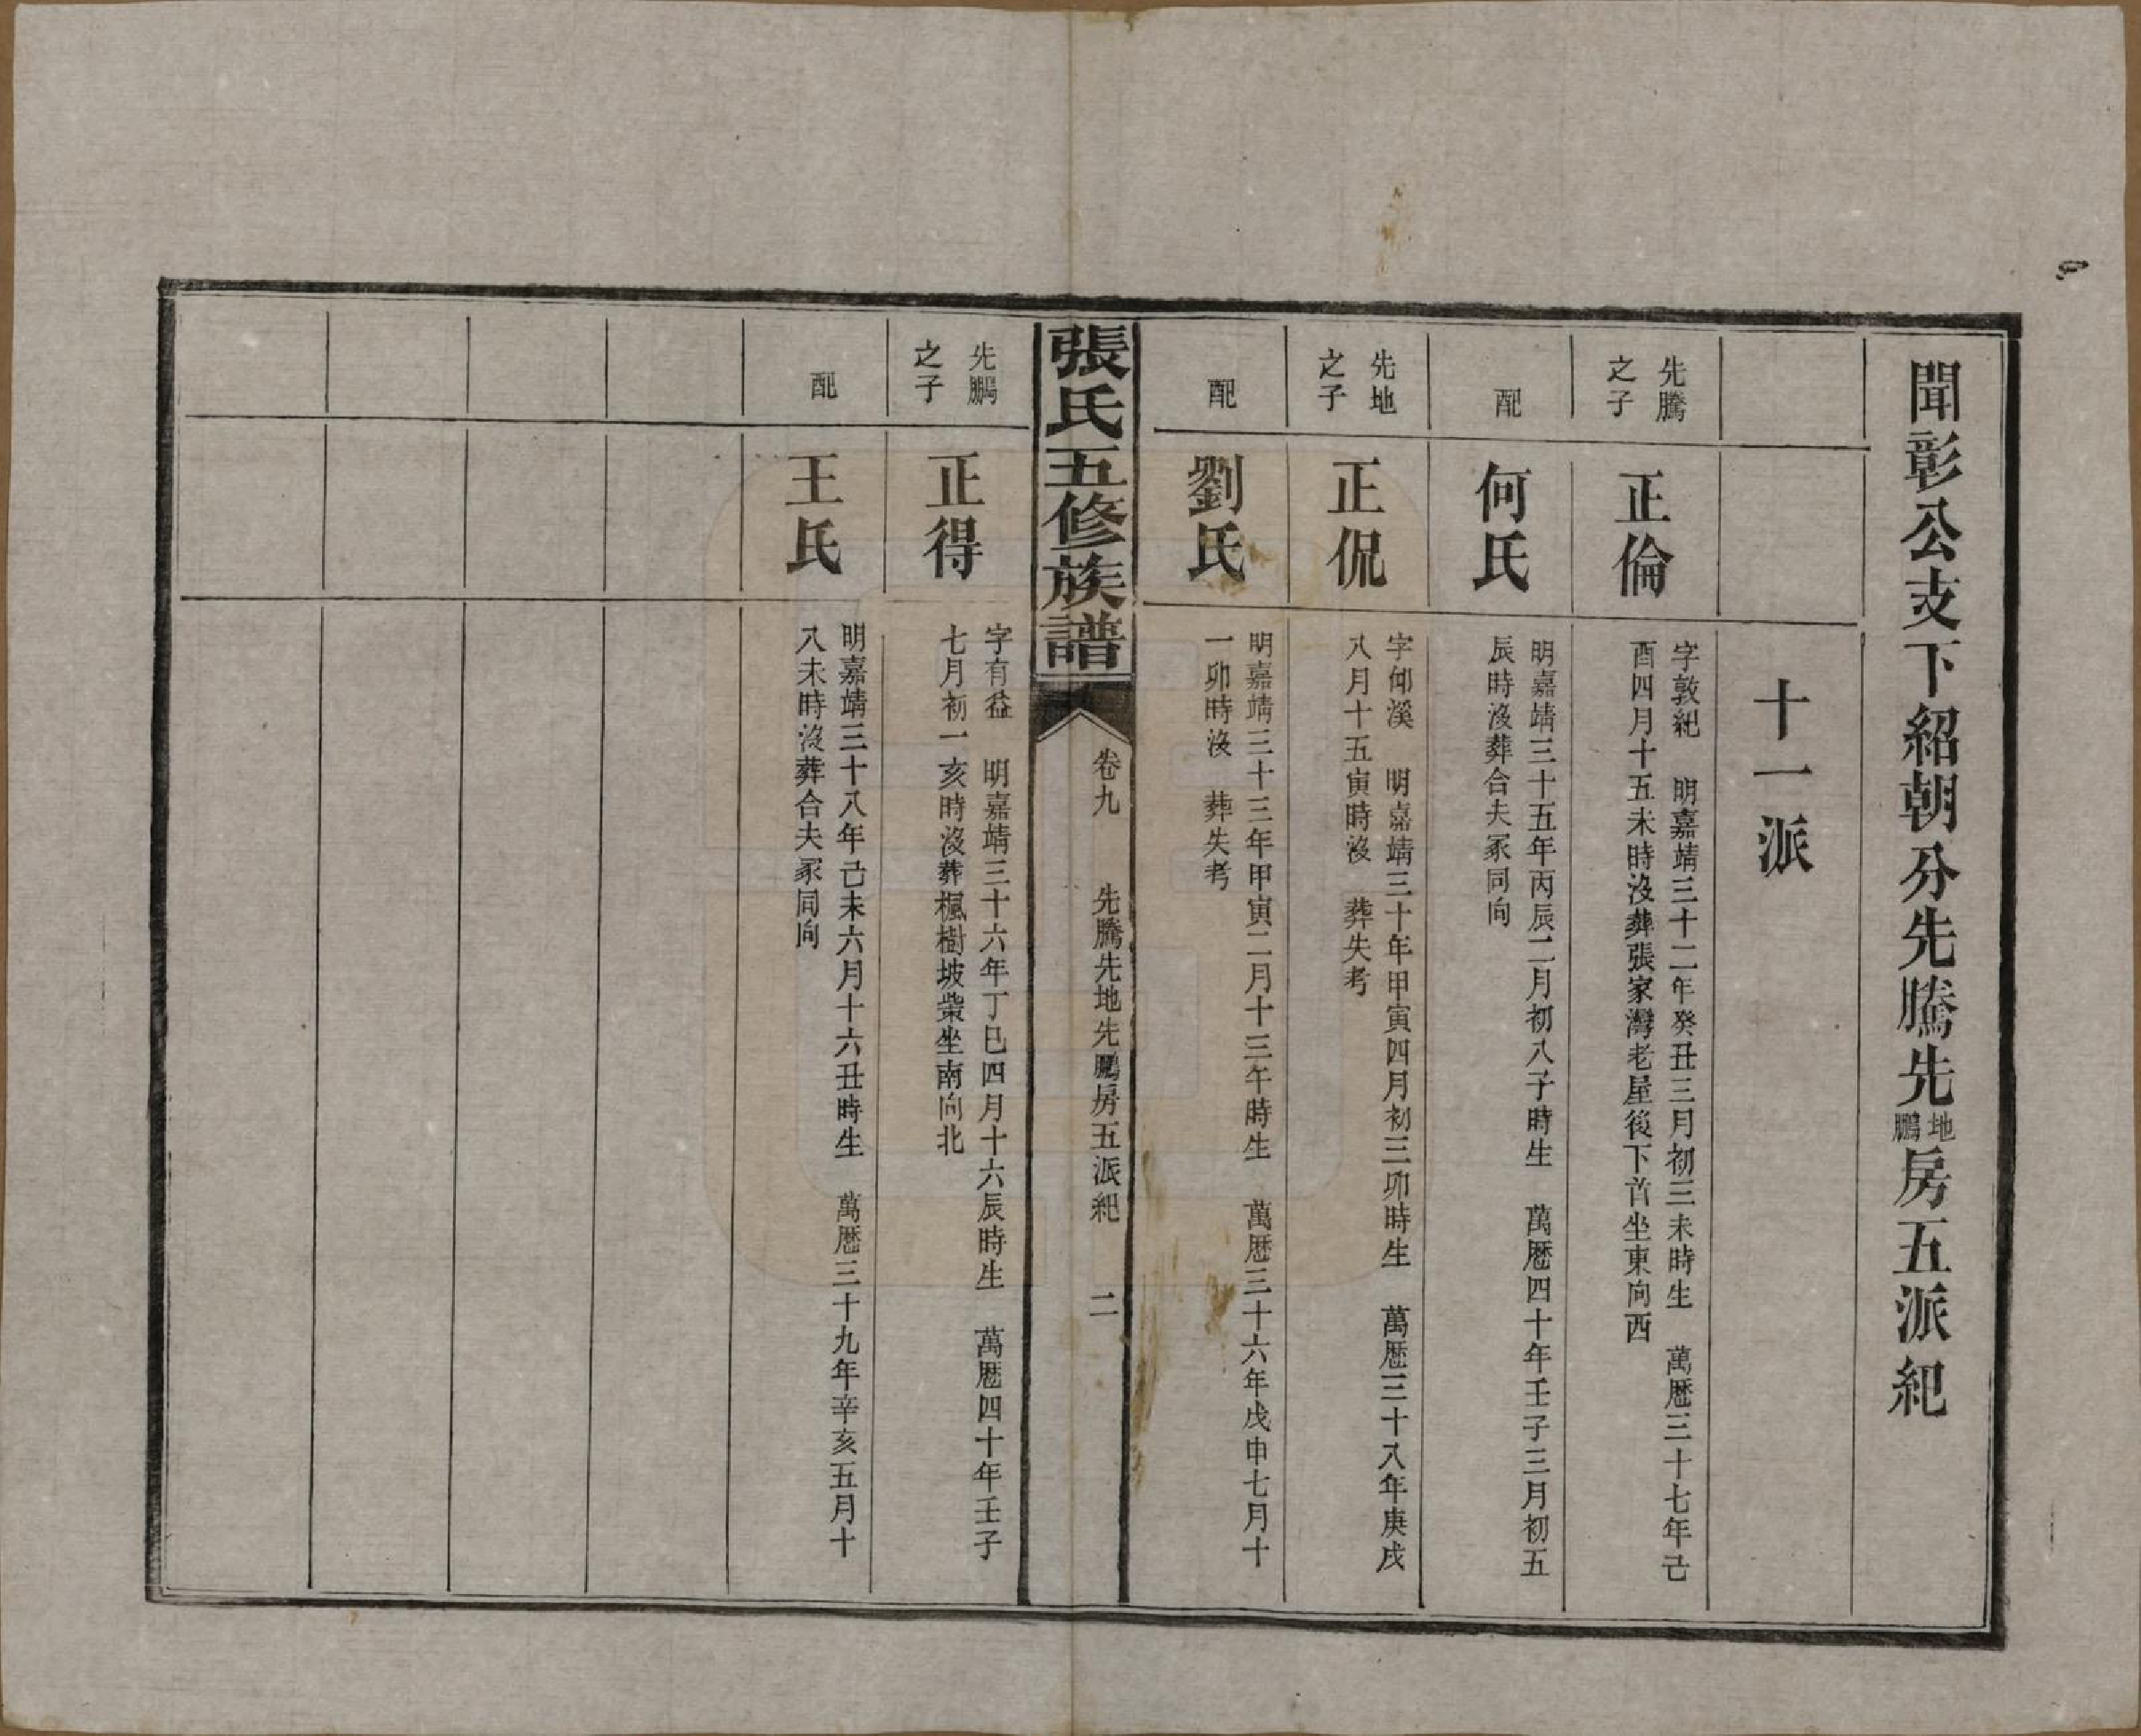 聞彰公支下紹朝分先騰先地鵬房五派紀
十一派
先騰
之子
正倫
字敦紀 明嘉靖三十二年癸丑三月初三未時生 萬厯三十七年己
酉四月十五未時沒葬張家灣老屋後下首坐東向西
配
何氏
明嘉靖三十五年丙辰二月初八子時生 萬厯四十年壬子三月初五
辰時沒葬合夫冢同向
先地
之子
正侃
字仰溪 明嘉靖三十年甲寅四月初三卯時生 萬厯三十八年庚戌
八月十五寅時沒 葬失考
配
劉氏
明嘉靖三十三年甲寅二月十三午時生 萬厯三十六年戊申七月十
一卯時沒 葬失考
張氏五修族譜
卷九 先騰先地先鵬房五派紀 二
先鵬
之子
正得
字有益 明嘉靖三十六年丁巳四月十六辰時生 萬厯四十年壬子
七月初一亥時沒葬楓樹坡柴坐南向北
配
王氏
明嘉靖三十八年己未六月十六丑時生 萬厯三十九年辛亥五月十
八未時沒葬合夫冢同向